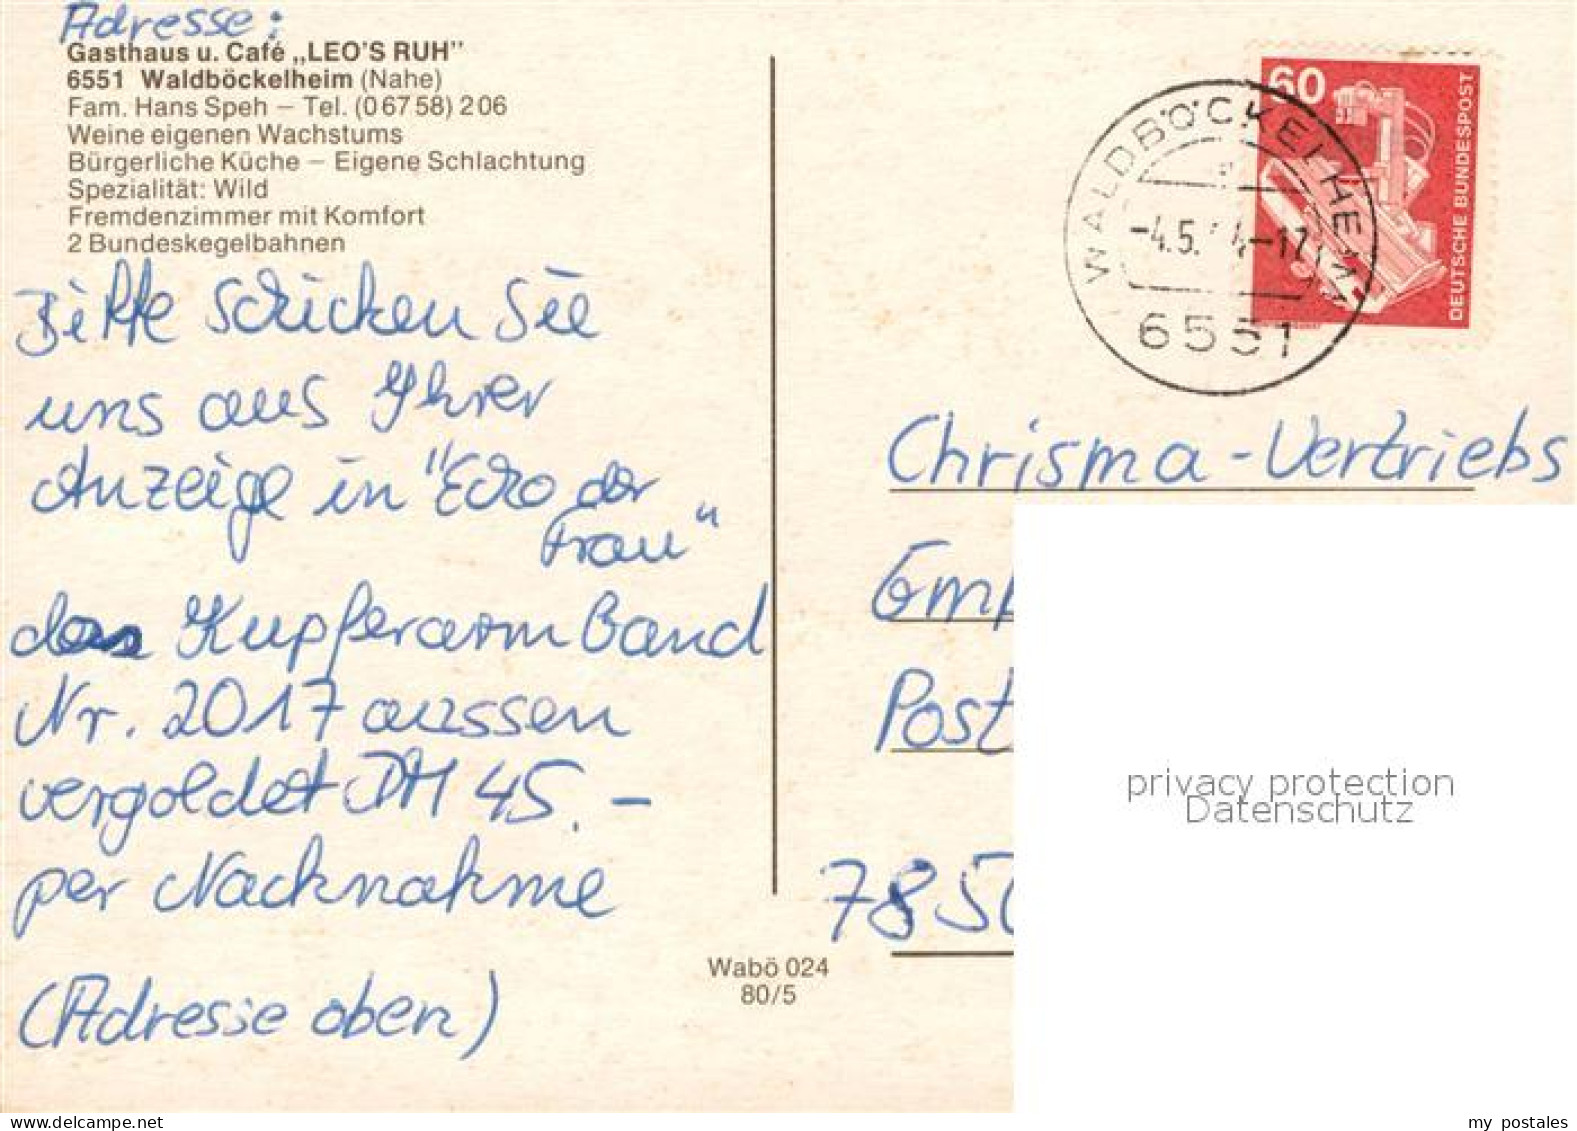 Adresse:
Gasthaus u. Café „LEO'S RUH"
6551 Waldböckelheim (Nahe)
Fam. Hans Speh – Tel. (06758) 206
Weine eigenen Wachstums
Bürgerliche Küche – Eigene Schlachtung
Spezialität: Wild
Fremdenzimmer mit Komfort
2 Bundeskegelbahnen
Bitte schicken Sie
uns aus Ihrer
Anzeige in "Echo der
Frau"
das Kupferarm Band
Nr. 2017 aussen
vergoldet DM 45.–
per Nachnahme
(Adresse oben)
Wabö 024
80/5
60
DEUTSCHE BUNDESPOST
WALDBÖCKELHEIM
-4.5. 4-17
6551
Chrisma-Vertriebs
Gmb
Post
7850
privacy protection
Datenschutz
my postales